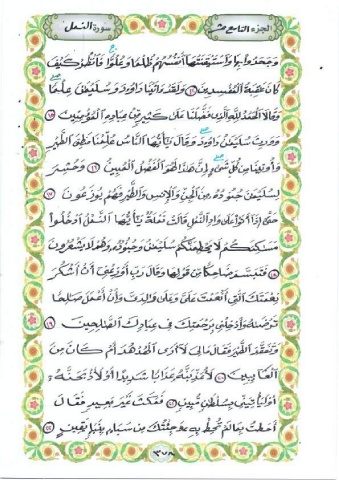 الجزء التاسع عشر
سورة النمل
وَجَحَدُوا بِهَا وَاسْتَيْقَنَتْهَا أَنفُسُهُمْ ظُلْمًا وَعُلُوًّا فَانظُرْ كَيْفَ
كَانَ عَاقِبَةُ الْمُفْسِدِينَ ١٤ وَلَقَدْ آتَيْنَا دَاوُودَ وَسُلَيْمَانَ عِلْمًا
وَقَالَا الْحَمْدُ لِلَّهِ الَّذِي فَضَّلَنَا عَلَى كَثِيرٍ مِّنْ عِبَادِهِ الْمُؤْمِنِينَ ١٥
وَوَرِثَ سُلَيْمَانُ دَاوُودَ وَقَالَ يَا أَيُّهَا النَّاسُ عُلِّمْنَا مَنطِقَ الطَّيْرِ
وَأُوتِينَا مِن كُلِّ شَيْءٍ إِنَّ هَذَا لَهُوَ الْفَضْلُ الْمُبِينُ ١٦ وَحُشِرَ
لِسُلَيْمَانَ جُنُودُهُ مِنَ الْجِنِّ وَالْإِنسِ وَالطَّيْرِ فَهُمْ يُوزَعُونَ ١٧
حَتَّى إِذَا أَتَوْا عَلَى وَادِ النَّمْلِ قَالَتْ نَمْلَةٌ يَا أَيُّهَا النَّمْلُ ادْخُلُوا
مَسَاكِنَكُمْ لَا يَحْطِمَنَّكُمْ سُلَيْمَانُ وَجُنُودُهُ وَهُمْ لَا يَشْعُرُونَ
١٨ فَتَبَسَّمَ ضَاحِكًا مِّن قَوْلِهَا وَقَالَ رَبِّ أَوْزِعْنِي أَنْ أَشْكُرَ
نِعْمَتَكَ الَّتِي أَنْعَمْتَ عَلَيَّ وَعَلَى وَالِدَيَّ وَأَنْ أَعْمَلَ صَالِحًا
تَرْضَاهُ وَأَدْخِلْنِي بِرَحْمَتِكَ فِي عِبَادِكَ الصَّالِحِينَ ١٩
وَتَفَقَّدَ الطَّيْرَ فَقَالَ مَا لِيَ لَا أَرَى الْهُدْهُدَ أَمْ كَانَ مِنَ
الْغَائِبِينَ ٢٠ لَأُعَذِّبَنَّهُ عَذَابًا شَدِيدًا أَوْ لَأَذْبَحَنَّهُ
أَوْ لَيَأْتِيَنِّي بِسُلْطَانٍ مُّبِينٍ ٢١ فَمَكَثَ غَيْرَ بَعِيدٍ فَقَالَ
أَحَطتُ بِمَا لَمْ تُحِطْ بِهِ وَجِئْتُكَ مِن سَبَإٍ بِنَبَإٍ يَقِينٍ ٢٢
٣٧٨